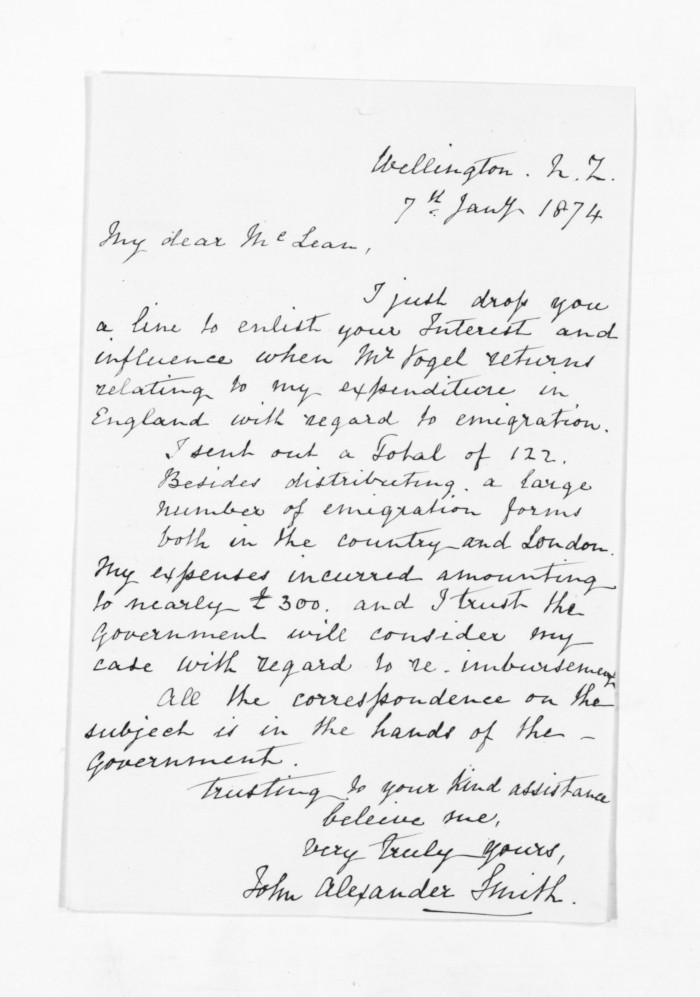 Wellington. N.Z.
7th Jany 1874
My dear McLean,
I just drop you
a line to enlist your Interest and
influence when Mr Vogel returns
relating to my expenditure in
England with regard to emigration.
I sent out a Total of 122.
Besides distributing. a large
number of emigration forms
both in the country and London.
My expenses incurred amounting
to nearly £300. and I trust the
Government will consider my
case with regard to re-imbursement
All the correspondence on the
subject is in the hands of the –
Government.
Trusting to your kind assistance
beleive me,
very truly yours,
John Alexander Smith.